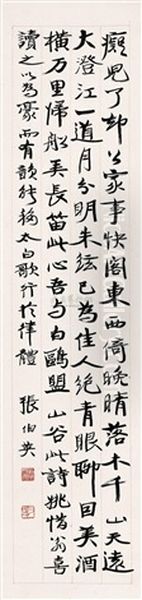 癡兒了却公家事快閣東西倚晚晴落木千山天遠
大澄江一道月分明朱絃已為佳人絕青眼聊因美酒
橫万里歸船弄長笛此心吾与白鷗盟 山谷此詩姚惜翁喜
讀之以為豪而有韻能移太白歌行於律體 張伯英